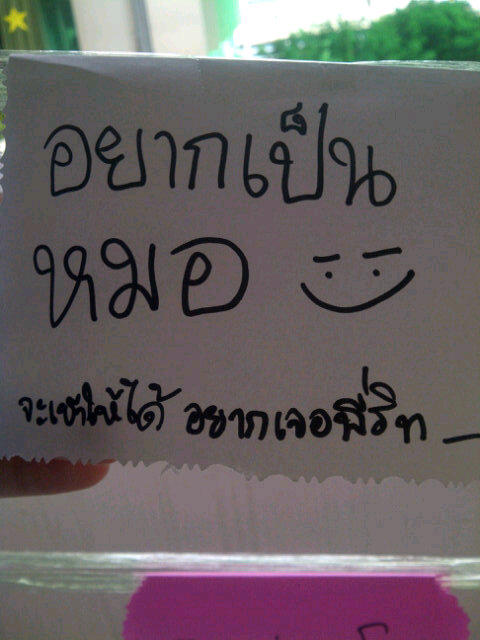 อยากเป็น
หมอ
จะเข้าให้ได้ อยากเจอพี่ริท